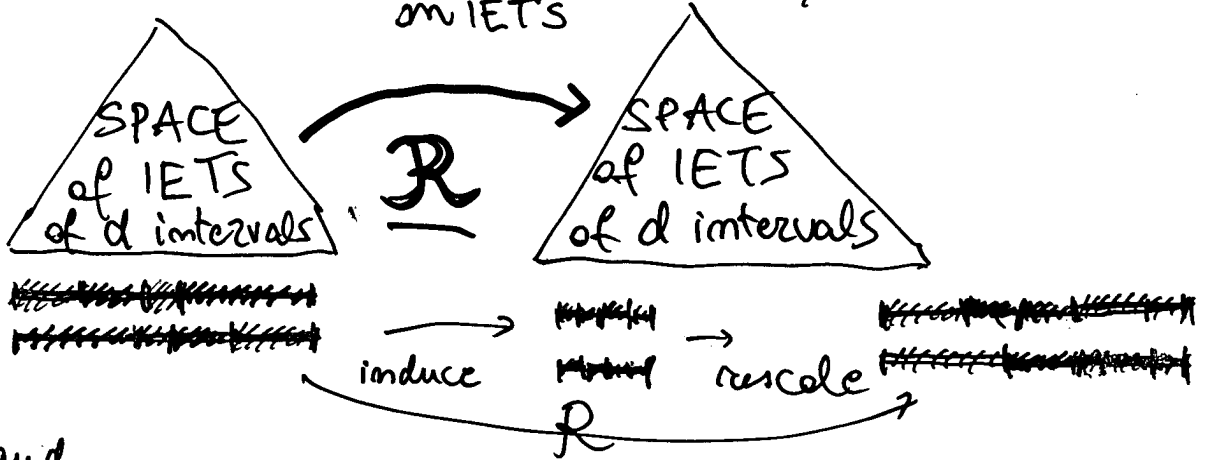 on IETS
SPACE
of IETS
of d intervals
R
SPACE
of IETS
of d intervals
induce
rescale
R